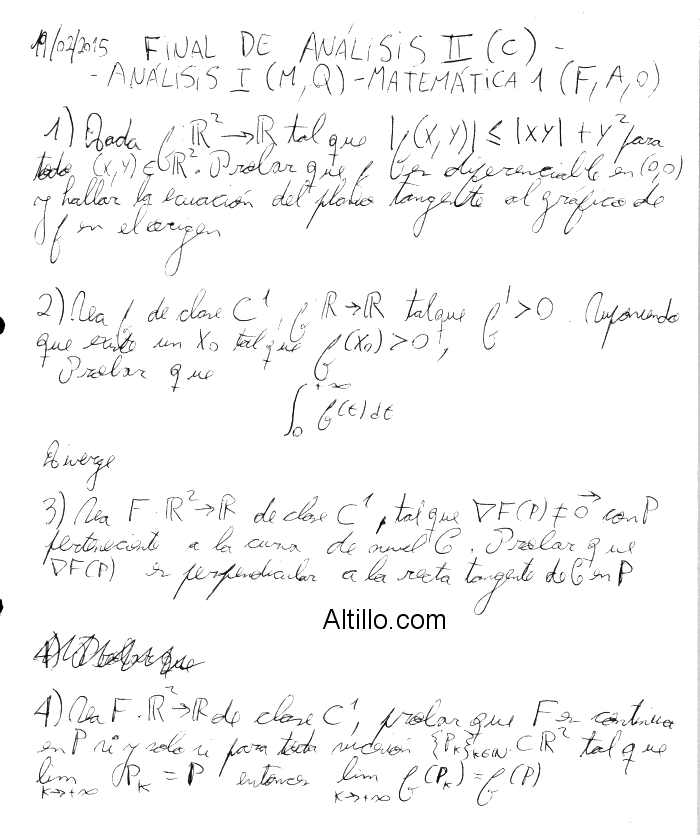 19/02/2015 FINAL DE ANÁLISIS II (C) -
- ANÁLISIS I (M, Q) - MATEMÁTICA 1 (F, A, O)
1) Dada f: ℝ² → ℝ tal que |f(x,y)| ≤ |xy| + y² para
todo (x,y) ∈ ℝ². Probar que f es diferenciable en (0,0)
y hallar la ecuación del plano tangente al gráfico de
f en el origen
2) Sea f de clase C¹, f: ℝ → ℝ tal que f' > 0. Suponiendo
que existe un x₀ tal que f(x₀) > 0,
Probar que
∫₀^{+∞} f(t) dt
Diverge
3) Sea F: ℝ² → ℝ de clase C¹, tal que ∇F(P) ≠ 0⃗ con P
perteneciente a la curva de nivel C. Probar que
∇F(P) es perpendicular a la recta tangente de C en P
Altillo.com
4)
4) Sea F: ℝ² → ℝ de clase C¹, probar que F es continua
en P si y solo si para toda sucesión {P_k}_{k∈ℕ} ⊂ ℝ² tal que
lim_{k→+∞} P_k = P entonces lim_{k→+∞} f(P_k) = f(P)